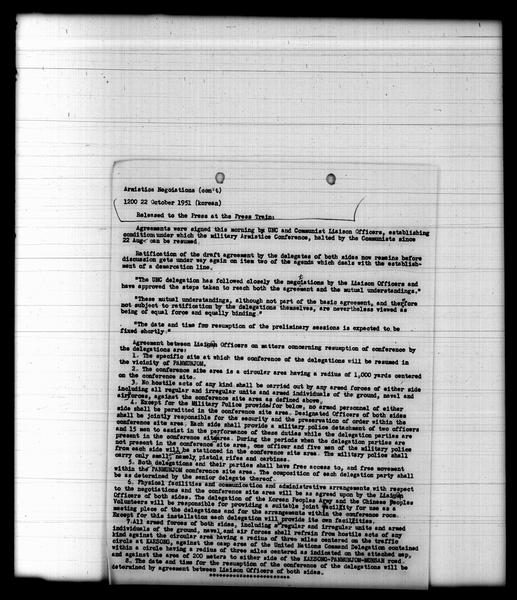 Armistice Negoiations (con't)
1200 22 October 1951 (korean)
Released to the Press at the Press Train:
Agreements were signed this morning by UNC and Communist Liaison Officers, establishing
condition under which the military Armistice Conference, halted by the Communists since
22 Aug can be resumed.
Ratification of the draft agreement by the delegates of both sides now remains before
discussion gets under way again on item two of the agenda which deals with the establish-
ment of a demarcation line.
"The UNC delegation has followed closely the negotiations by the Liaison Officers and
have approved the steps taken to reach both the agreement and the mutual understandings."
"These mutual understandings, although not part of the basic agreement, and therefore
not subject to retification by the delegations themselves, are nevertheless viewed as
being of equal force and equally binding."
"The date and time for resumption of the preliminary sessions is expected to be
fixed shortly."
Agreement between Liaison Officers on matters concerning resumption of conference by
the delegations are:
1. The specific site at which the conference of the delegations will be resumed in
the vicinity of PANMUNJOM.
2. The conference site area is a circular area having a radius of 1,000 yards centered
on the conference site.
3. No hostile acts of any kind shall be carried out by any armed forces of either side
including all regular and irregular units and armed individuals of the ground, naval and
air forces, against the conference site area defined above.
4. Except for the Military Police provided for below, no armed personnel of either
side shall be permitted in the conference site area. Designated Officers of both sides
shall be jointly responsible for the security and the preservation of order within the
conference site area. Each side shall provide a military police detachment of two officers
and 15 men to assist in the performance of these duties while the delegation parties are
present in the conference site area. During the periods when the delegation parties are
not present in the conference site area, one officer and five men of the military police
from each side will be stationed in the conference site area. The military police shall
carry only small namely pistols rifes and carbines.
5. Both delegations and their parties shall have free access to, and free movement
within the PANMUNJOM conference site area. The composition of each delegation party shall
be as determined by the senior delegate thereof.
6. Physical facilities and communication and administrative arrangements with respect
to the negotiations and the conference site area will be as agreed upon by the Liaison
Officers of both sides. The delegation of the Korean Peoples Army and the Chinese Peoples
Volunteers will be responsible for providing a suitable joint facility for use as a
meeting place of the delegations and for the arrangements within the conference room.
Except for this installation each delegation will provide its own facilities.
7. All armed forces of both sides, including regular and irregular units and armed
individuals of the ground, naval and air forces shall refrain from hostile acts of any
kind against the circular area having a radius of three miles centered on the traffic
circle at KAESONG, against the camp area of the United Nations Command Delegation contained
within a circle having a radius of three miles centered as indicated on the attached map,
and against the area of 200 meters to either side of the KAESONG-PANMUNJOM-MUNSAN road.
8. The date and time for the resumption of the conference of the delegations will be
determined by agreement between Liaison Officers of both sides.